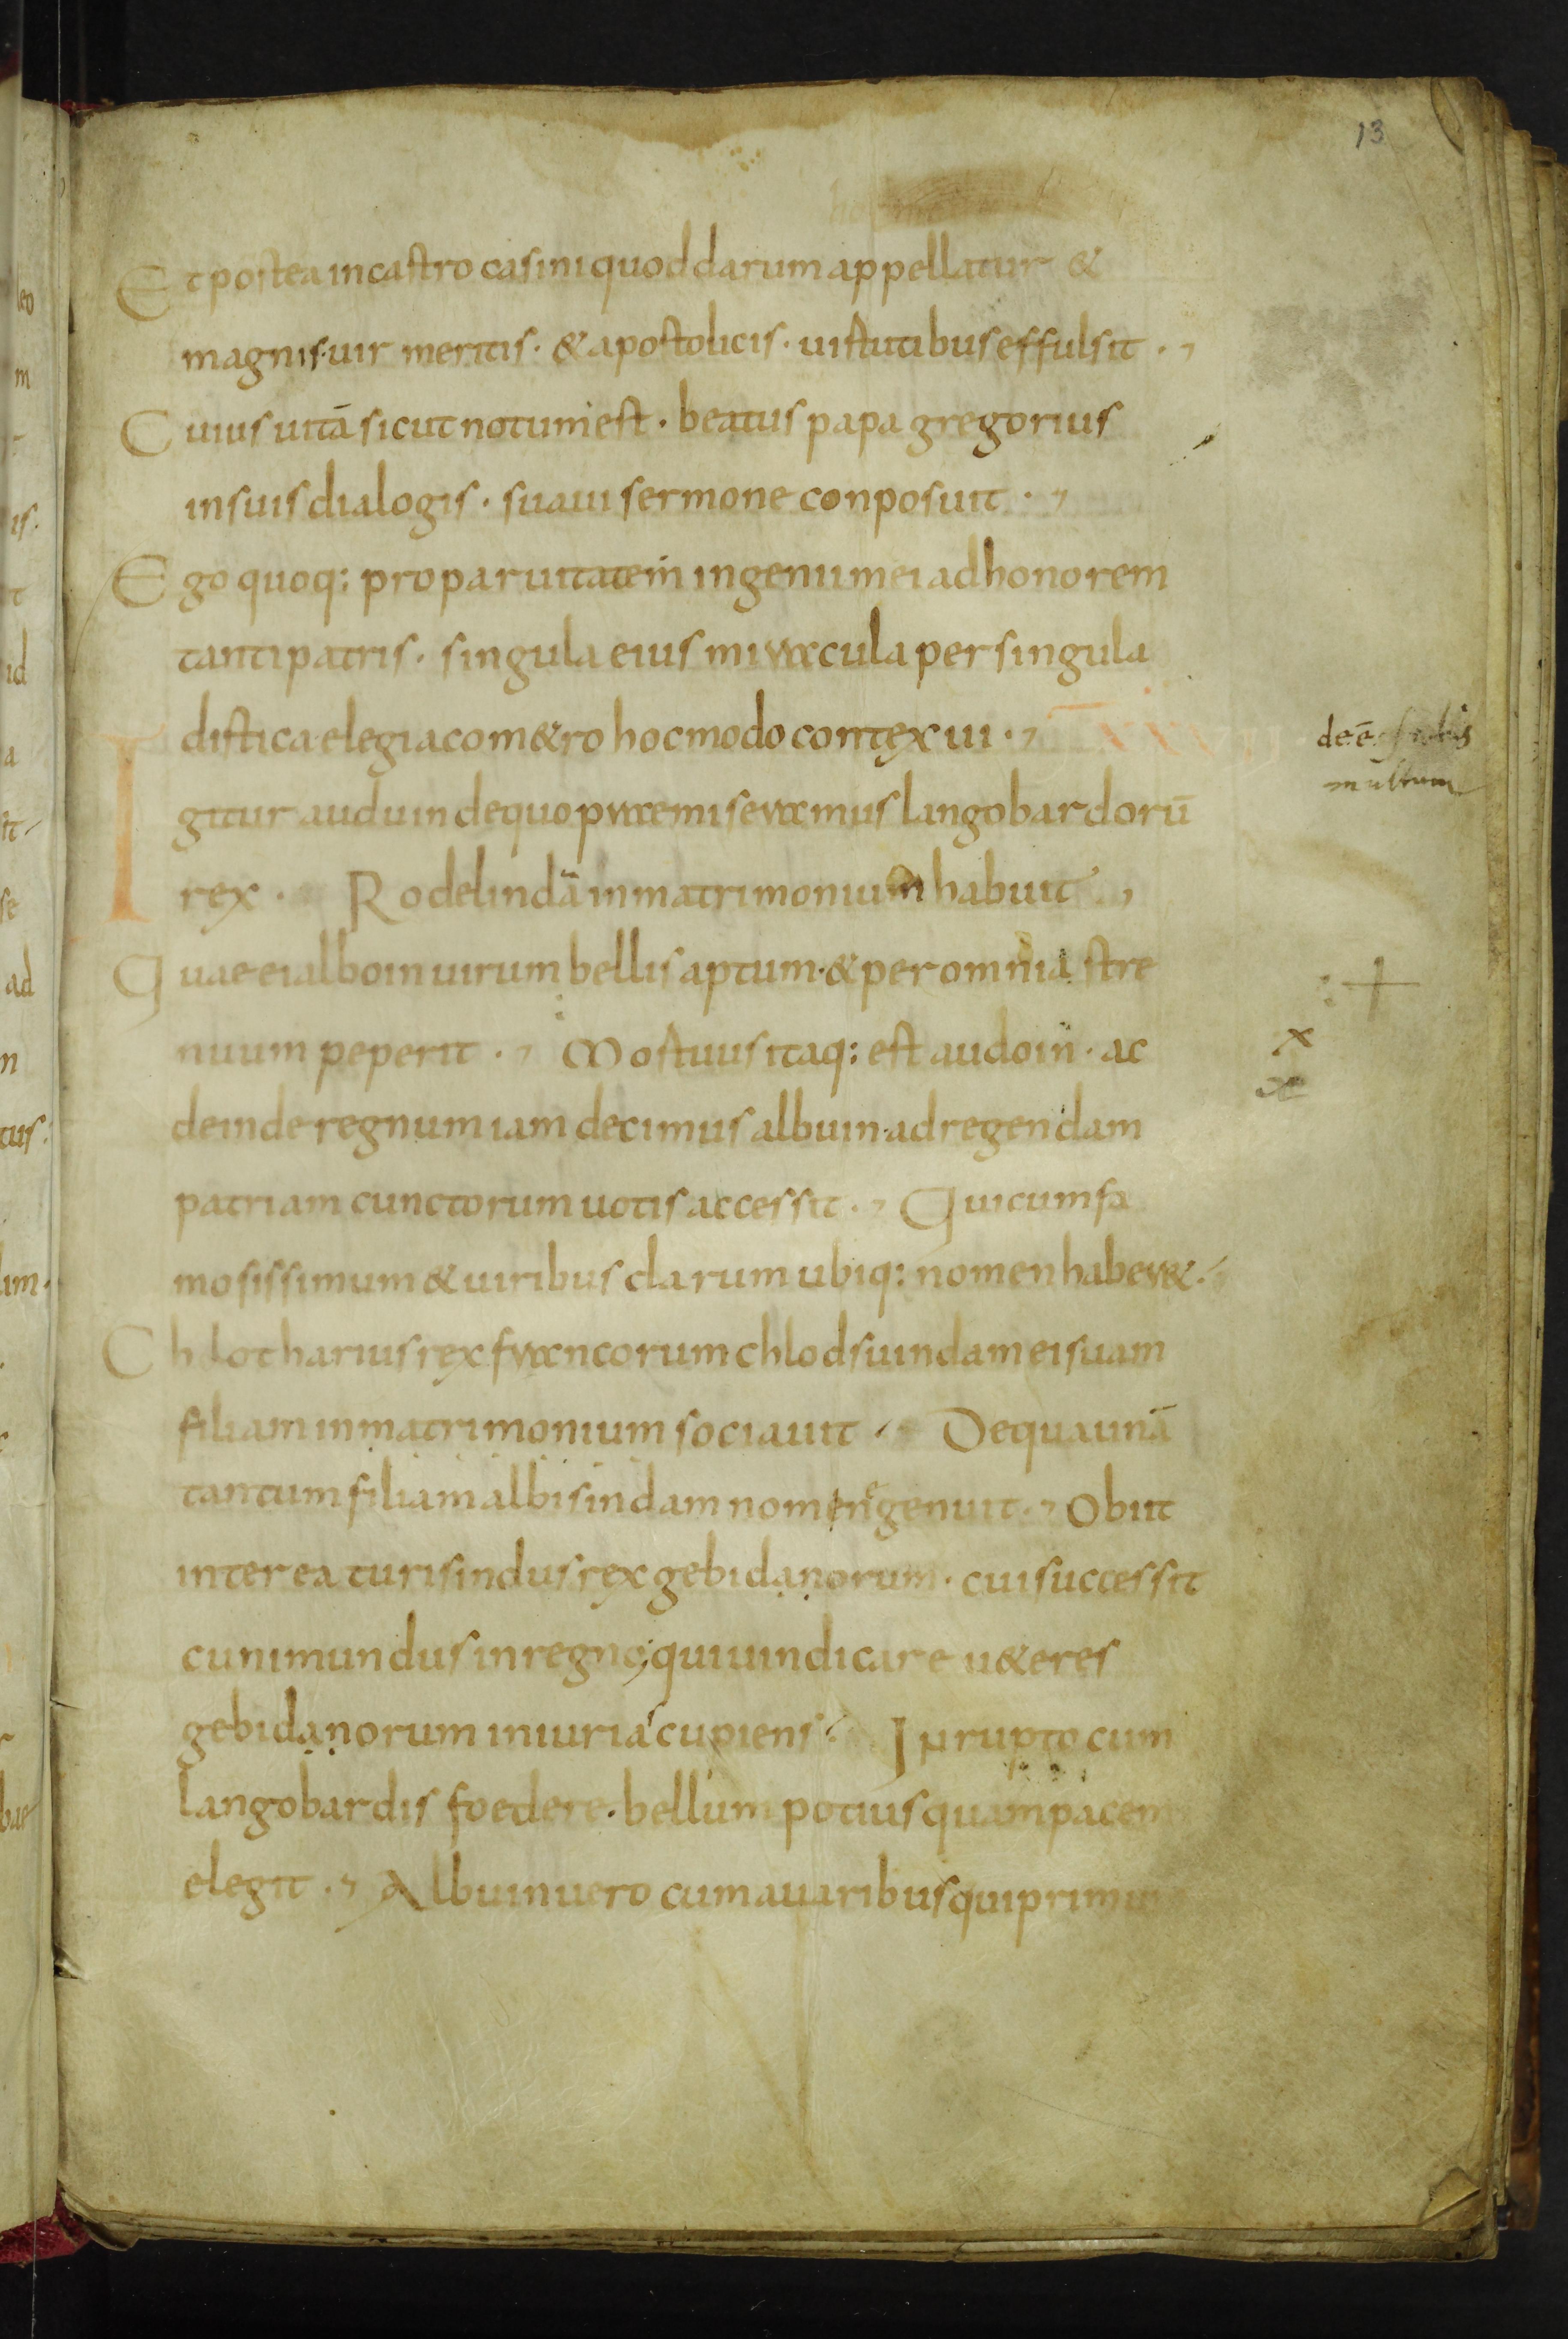 13
Et postea in castro casini quod darum appellatur &
magnis uir meritis · & apostolicis · uirtutibus effulsit ·,
Cuius uitā sicut notum est · beatus papa gregorius
in suis dialogis · suaui sermone conposuit ·,
Ego quoq; pro paruitatem ingenii mei ad honorem
tanti patris · singula eius miracula per singula
distica elegiaco m&ro hoc modo contexui ·,
de ē
multum
Igitur auduin de quo praemiseramus langobardorū
rex · Rodelindā in matrimonium habuit ·,
Quae ei alboin uirum bellis aptum · & per omnia stre
nuum peperit ·, Mortuus itaq; est audoin · ac
deinde regnum iam decimus albuin ad regendam
patriam cunctorum uotis accessit ·, Qui cum fa
mosissimum & uiribus clarum ubiq; nomen haber& ·
Chlotharius rex francorum chlodsuindam ei suam
filiam in matrimonium sociauit · De qua unā
tantum filiam albisindam nomen genuit ·, Obiit
interea turisindus rex gebidanorum · cui successit
cunimundus in regno, qui uindicare u&eres
gebidanorum iniurias cupiens · Irrupto cum
langobardis foedere · bellum potius quam pacem
elegit ·, Albuin uero cum auaribus qui primum